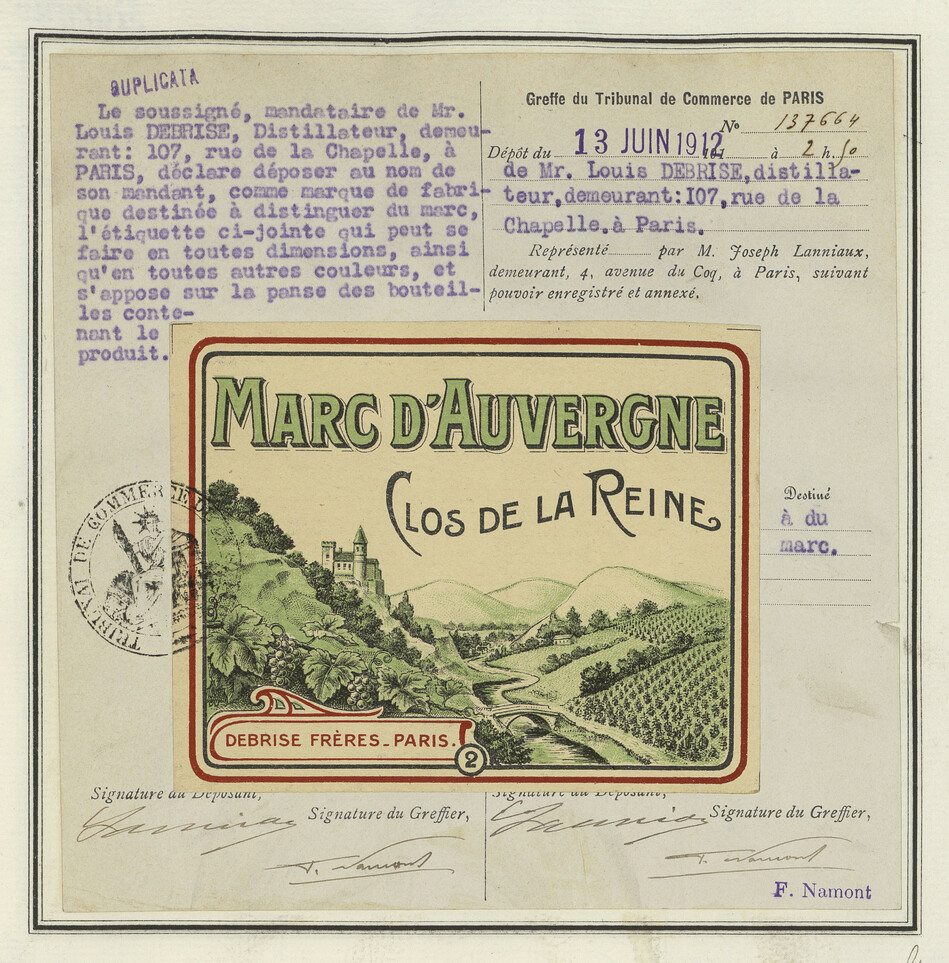 DUPLICATA
Le soussigné, mandataire de Mr.
Louis DEBRISE, Distillateur, demeu-
rant: 107, rue de la Chapelle, à
PARIS, déclare déposer au nom de
son mandant, comme marque de fabri-
que destinée à distinguer du marc,
l'étiquette ci-jointe qui peut se
faire en toutes dimensions, ainsi
qu'en toutes autres couleurs, et
s'appose sur la panse des bouteil-
les conte-
nant le
produit.
Greffe du Tribunal de Commerce de PARIS
No 137664
Dépôt du 13 JUIN 1912 à 2 h. 50
de Mr. Louis DEBRISE, distilla-
teur, demeurant: I07, rue de la
Chapelle. à Paris.
Représenté par M. Joseph Lanniaux,
demeurant, 4, avenue du Coq, à Paris, suivant
pouvoir enregistré et annexé.
MARC D'AUVERGNE
CLOS DE LA REINE
DEBRISE FRÈRES_PARIS.
2
TRIBUNAL DE COMMERCE DE
Destiné
à du
marc.
Signature du Déposant,
Signature du Greffier,
F. Namont
Signature du Déposant,
Signature du Greffier,
F. Namont
F. Namont